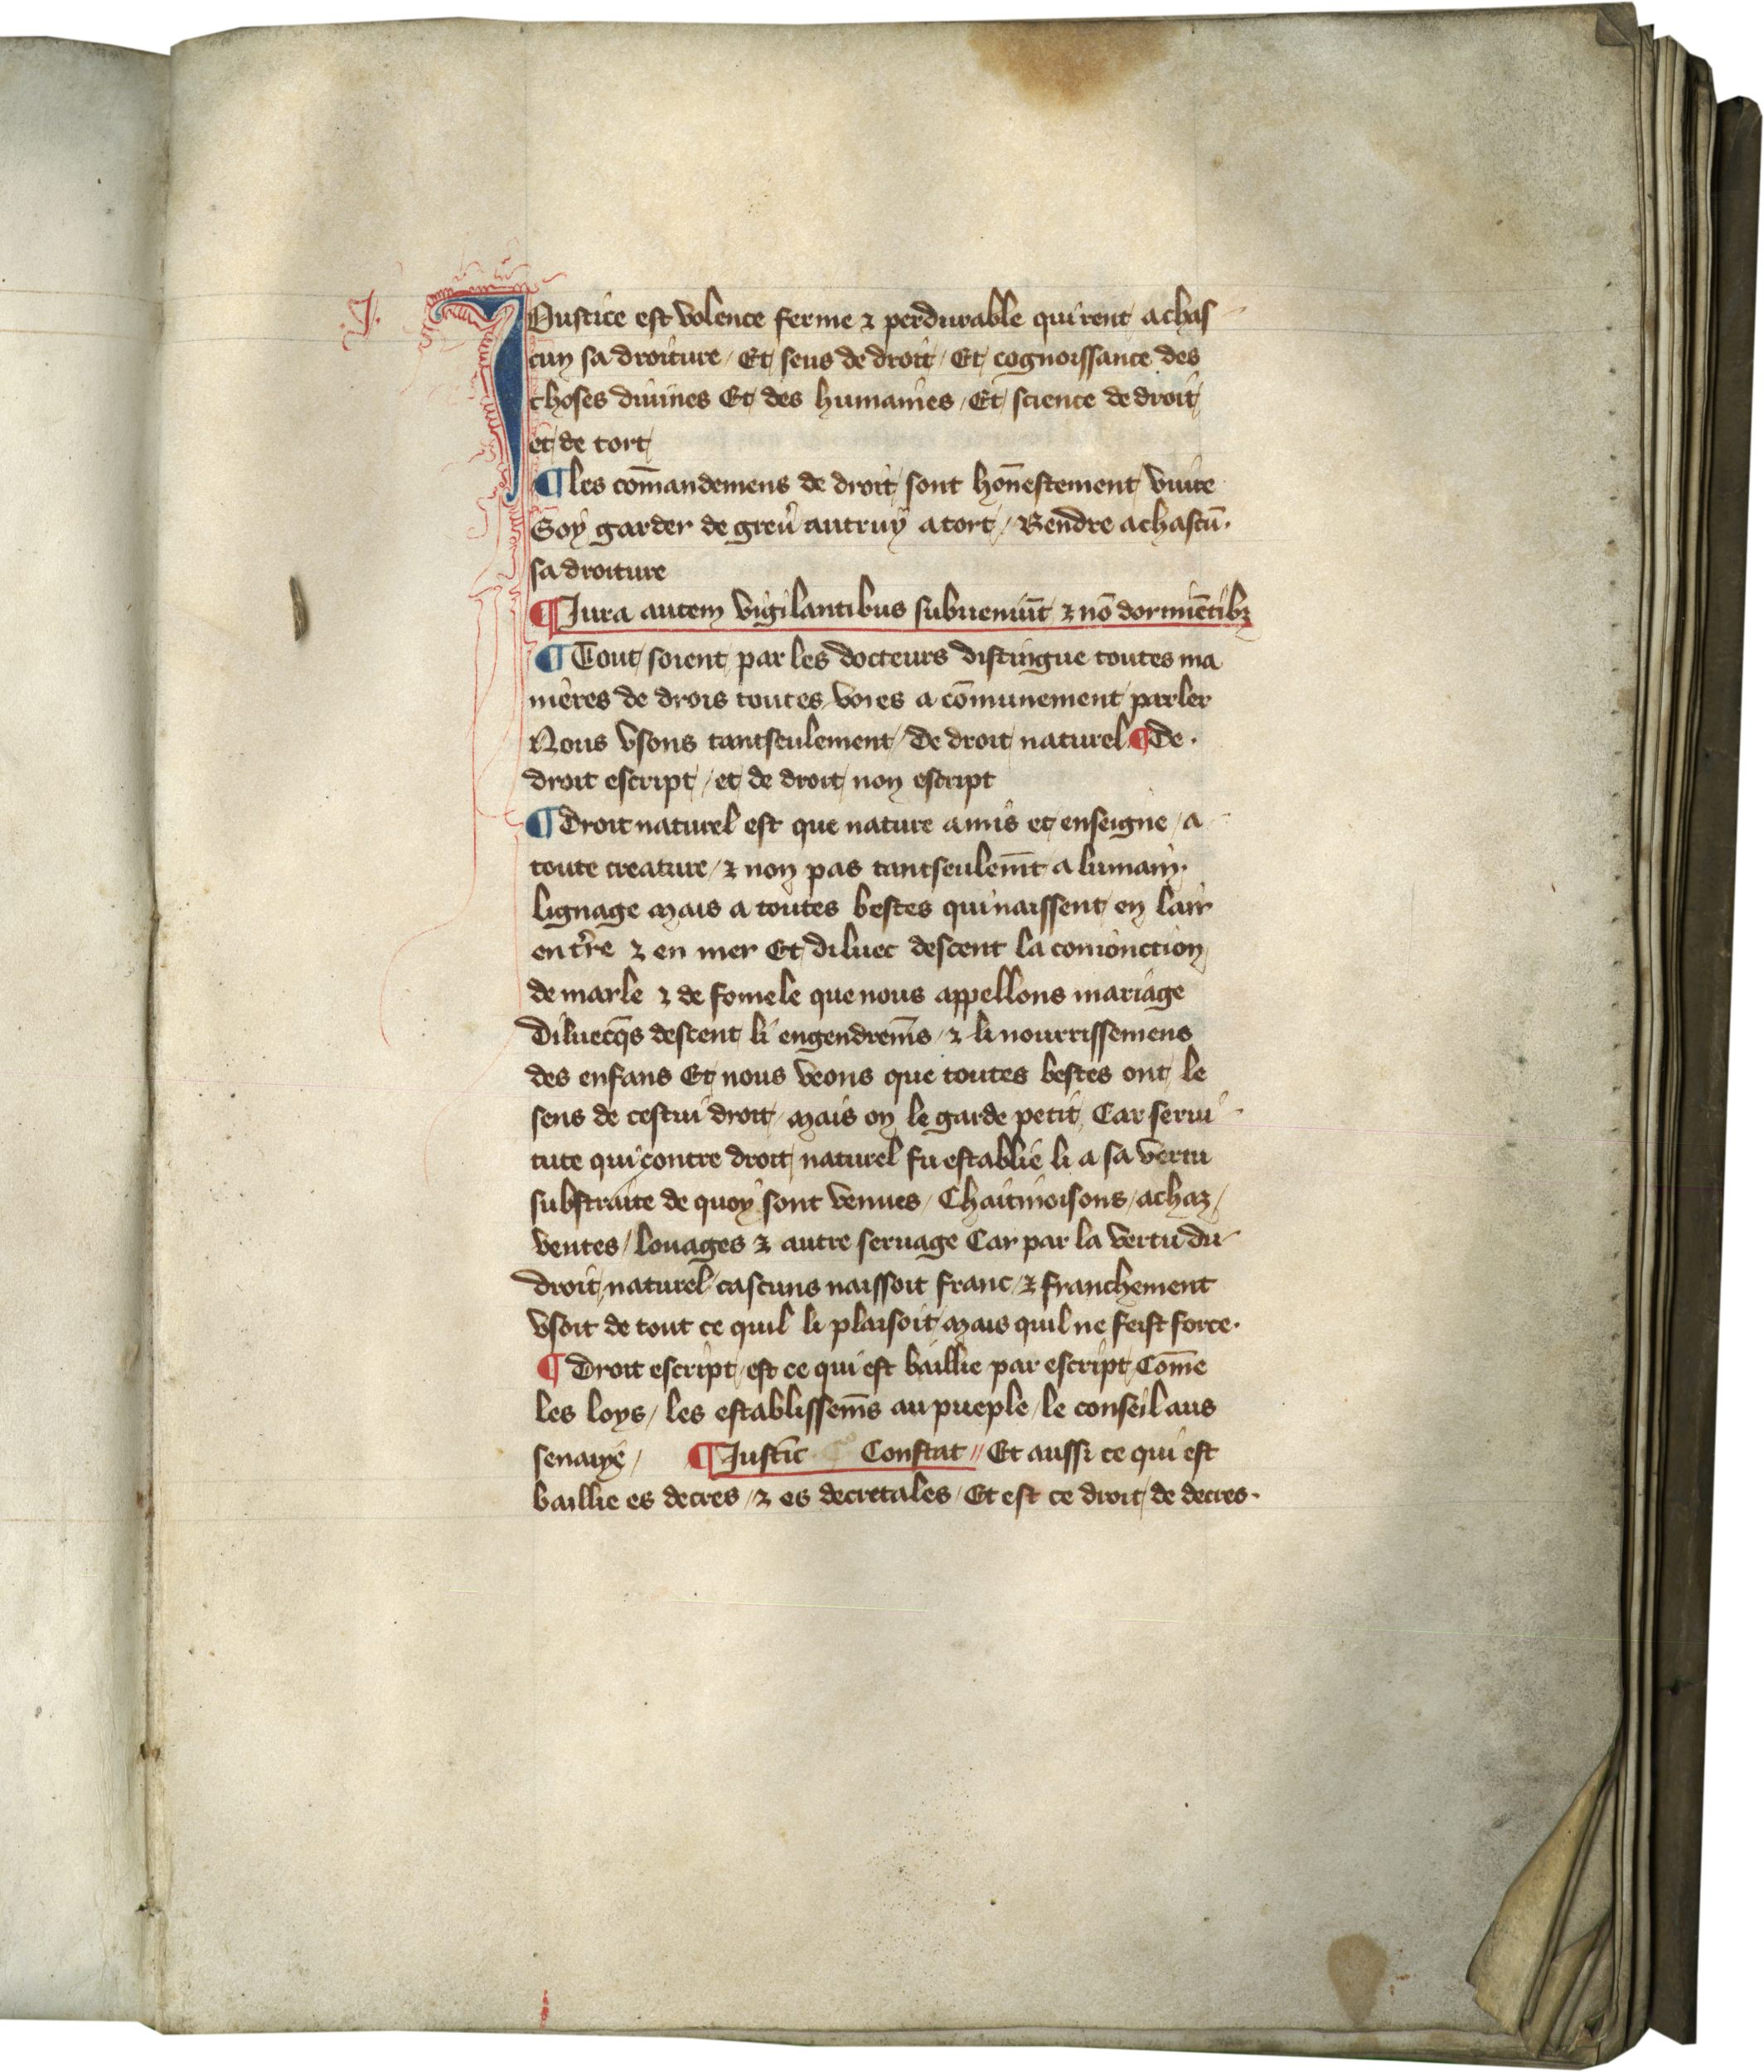 J.
Justice est volence ferme ⁊ perdurable qui rent achas
cun sa droiture / Et sens de droit / Et cognoissance des
choses diuines Et des humaines / Et science de droit
et de tort
¶ les com̄andemens de droit sont hon̄estement viure
Soy garder de greu᷑ autruy atort / Rendre achascū .
sa droiture
¶ Jura autem vigilantibus subueniūt ⁊ nō dormiētibꝫ
¶ Tout soient par les docteurs distingue toutes ma
nieres de drois toutes voies a cōmunement parler
Nous vsons tantseulement / de droit naturel ¶ de .
droit escript / et de droit non escript
¶ droit naturel est que nature amis et enseigne / a
toute creature / ⁊ non pas tantseulem̄t a lumain .
lignage mais a toutes bestes qui naissent en lair
en t᷑re ⁊ en mer Et diluec descent la conionction
de marle ⁊ de fomele que nous appellons mariage
diluecq̄s descent li engendrem̄s / ⁊ li nourrissemens
des enfans Et nous veons que toutes bestes ont le
sens de cestui droit / mais on le garde petit Car serui
tute qui contre droit naturel fu establie li a sa vertu
substraite de quoy sont venues / Chaitiuoisons / achaz /
ventes / louages ⁊ autre seruage Car par la vertu du
droit naturel cascuns naissoit franc / ⁊ franchement
vsoit de tout ce quil li plaisoit mais quil ne feist force .
¶ droit escript / est ce qui est baillie par escript Com̄e
les loys / les establissem̄s au pueple / le conseil aus
senat / ¶ Justic̄ Constat // Et aussi ce qui est
baillie es decres / ⁊ es decretales / Et est ce droit de decres .